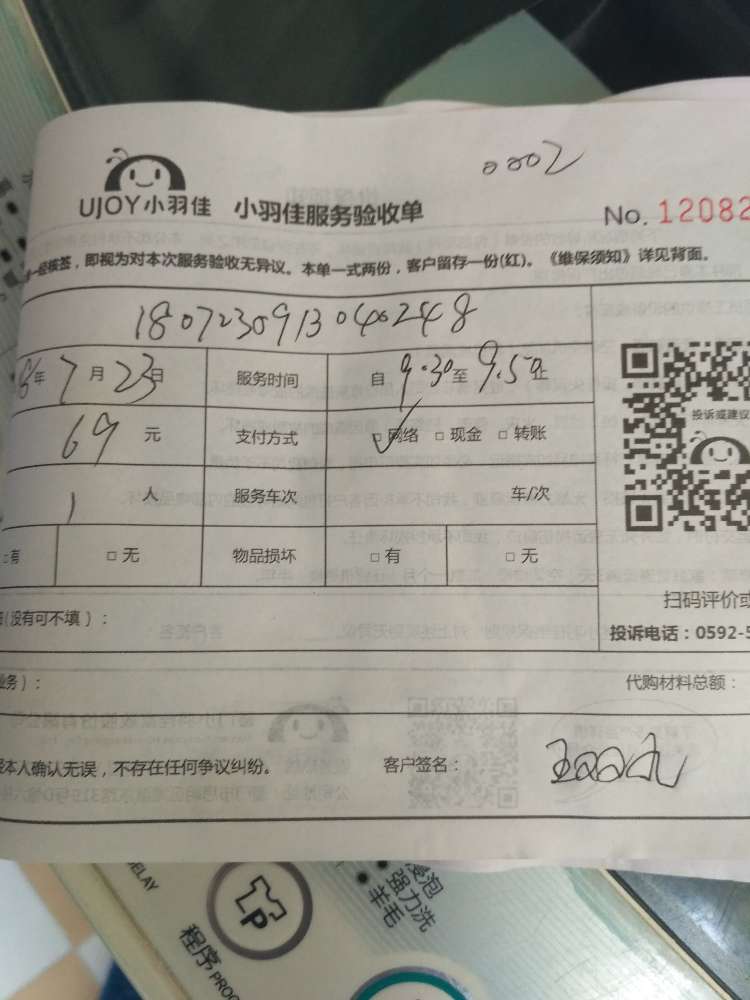 0002
UJOY小羽佳 小羽佳服务验收单 No. 12082
一经核签，即视为对本次服务验收无异议。本单一式两份，客户留存一份(红)。《维保须知》详见背面。
1807230913040248
8年7月23日 服务时间 自9:30至9:50止
投诉或建议
69元 支付方式 ☑网络 □现金 □转账
1人 服务车次 车/次
□有 □无 物品损坏 □有 □无
扫码评价或
(没有可不填)：
投诉电话：0592-5
业务)： 代购材料总额：
本人确认无误，不存在任何争议纠纷。 客户签名：
DELAY
浸泡
强力洗
羊毛
P
程序 PROG